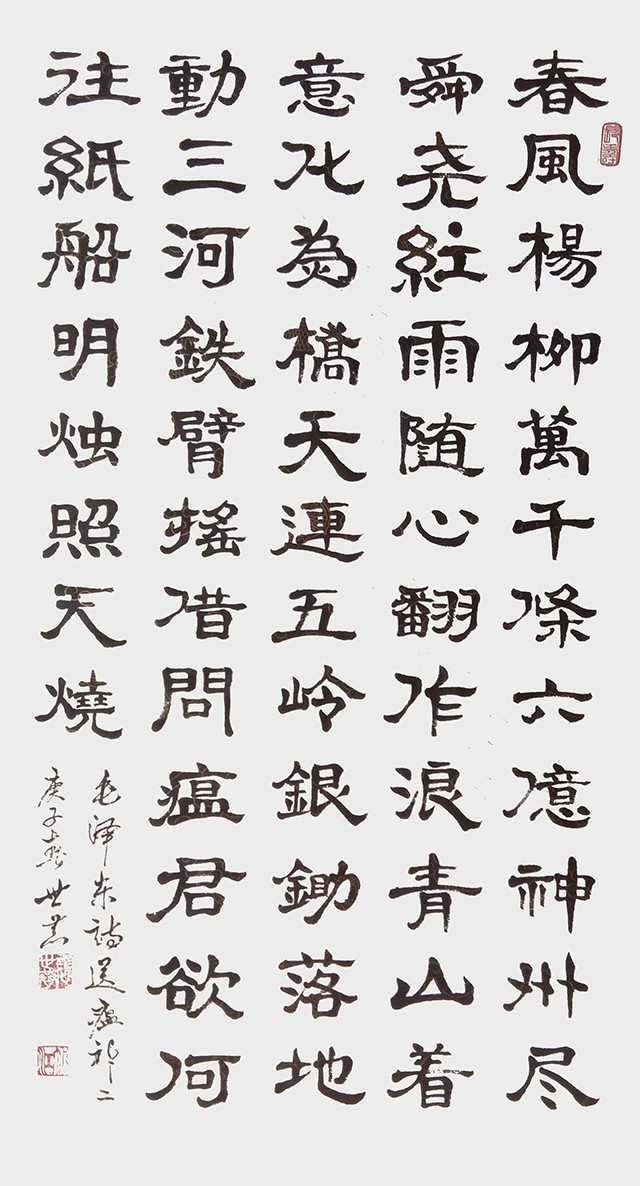 春風楊柳萬千條六億神州尽
舜尧紅雨随心翻作浪青山着
意化為橋天連五岭銀鋤落地
動三河鉄臂搖借問瘟君欲何
往紙船明烛照天燒
毛泽东诗送瘟神二
庚子 世